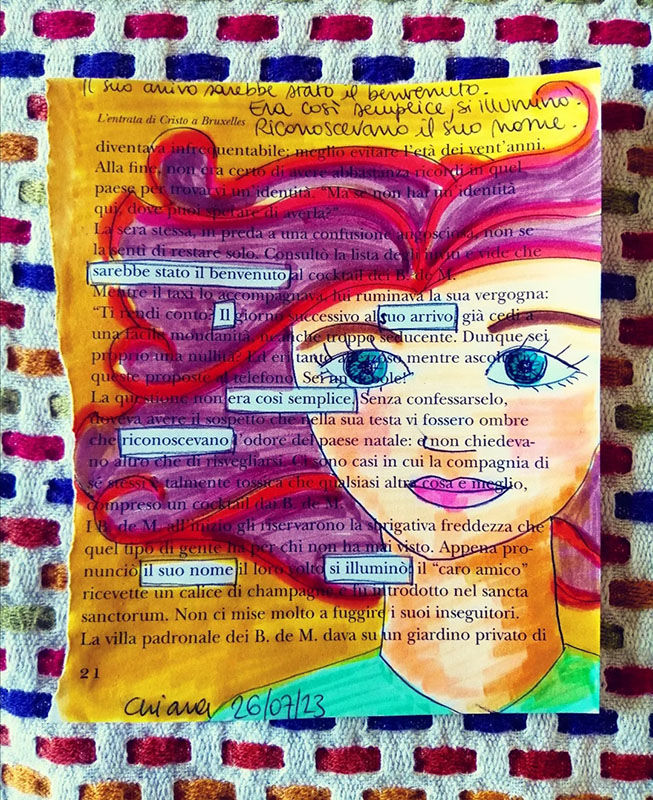 Il suo arrivo sarebbe stato il benvenuto.
Era così semplice, si illuminò.
Riconoscevano il suo nome.
L'entrata di Cristo a Bruxelles
diventava infrequentabile; meglio evitare l'età dei vent'anni.
Alla fine, non era certo di avere abbastanza ricordi in quel
paese per trovarvi un'identità. "Ma se non hai un'identità
qui, dove puoi sperare di averla?"
La sera stessa, in preda a una confusione angosciosa, non se
la sentì di restare solo. Consultò la lista degli inviti e vide che
sarebbe stato il benvenuto al cocktail dei B. de M.
Mentre il taxi lo accompagnava, lui ruminava la sua vergogna:
"Ti rendi conto? Il giorno successivo al suo arrivo già cedi a
una facile mondanità, neanche troppo seducente. Dunque sei
proprio una nullità? Ed eri tanto mentre ascoltavi
queste proposte al telefono. Sei un
La questione non era così semplice. Senza confessarselo,
doveva avere il sospetto che nella sua testa vi fossero ombre
che riconoscevano l'odore del paese natale: e non chiedeva-
no altro che di risvegliarsi. Ci sono casi in cui la compagnia di
sé stessi è talmente tossica che qualsiasi altra cosa è meglio,
compreso un cocktail dai B. de M.
I B. de M. all'inizio gli riservarono la sbrigativa freddezza che
quel tipo di gente ha per chi non ha mai visto. Appena pro-
nunciò il suo nome il loro volto si illuminò: il "caro amico"
ricevette un calice di champagne e fu introdotto nel sancta
sanctorum. Non ci mise molto a fuggire i suoi inseguitori.
La villa padronale dei B. de M. dava su un giardino privato di
21
Chiara 26/07/23